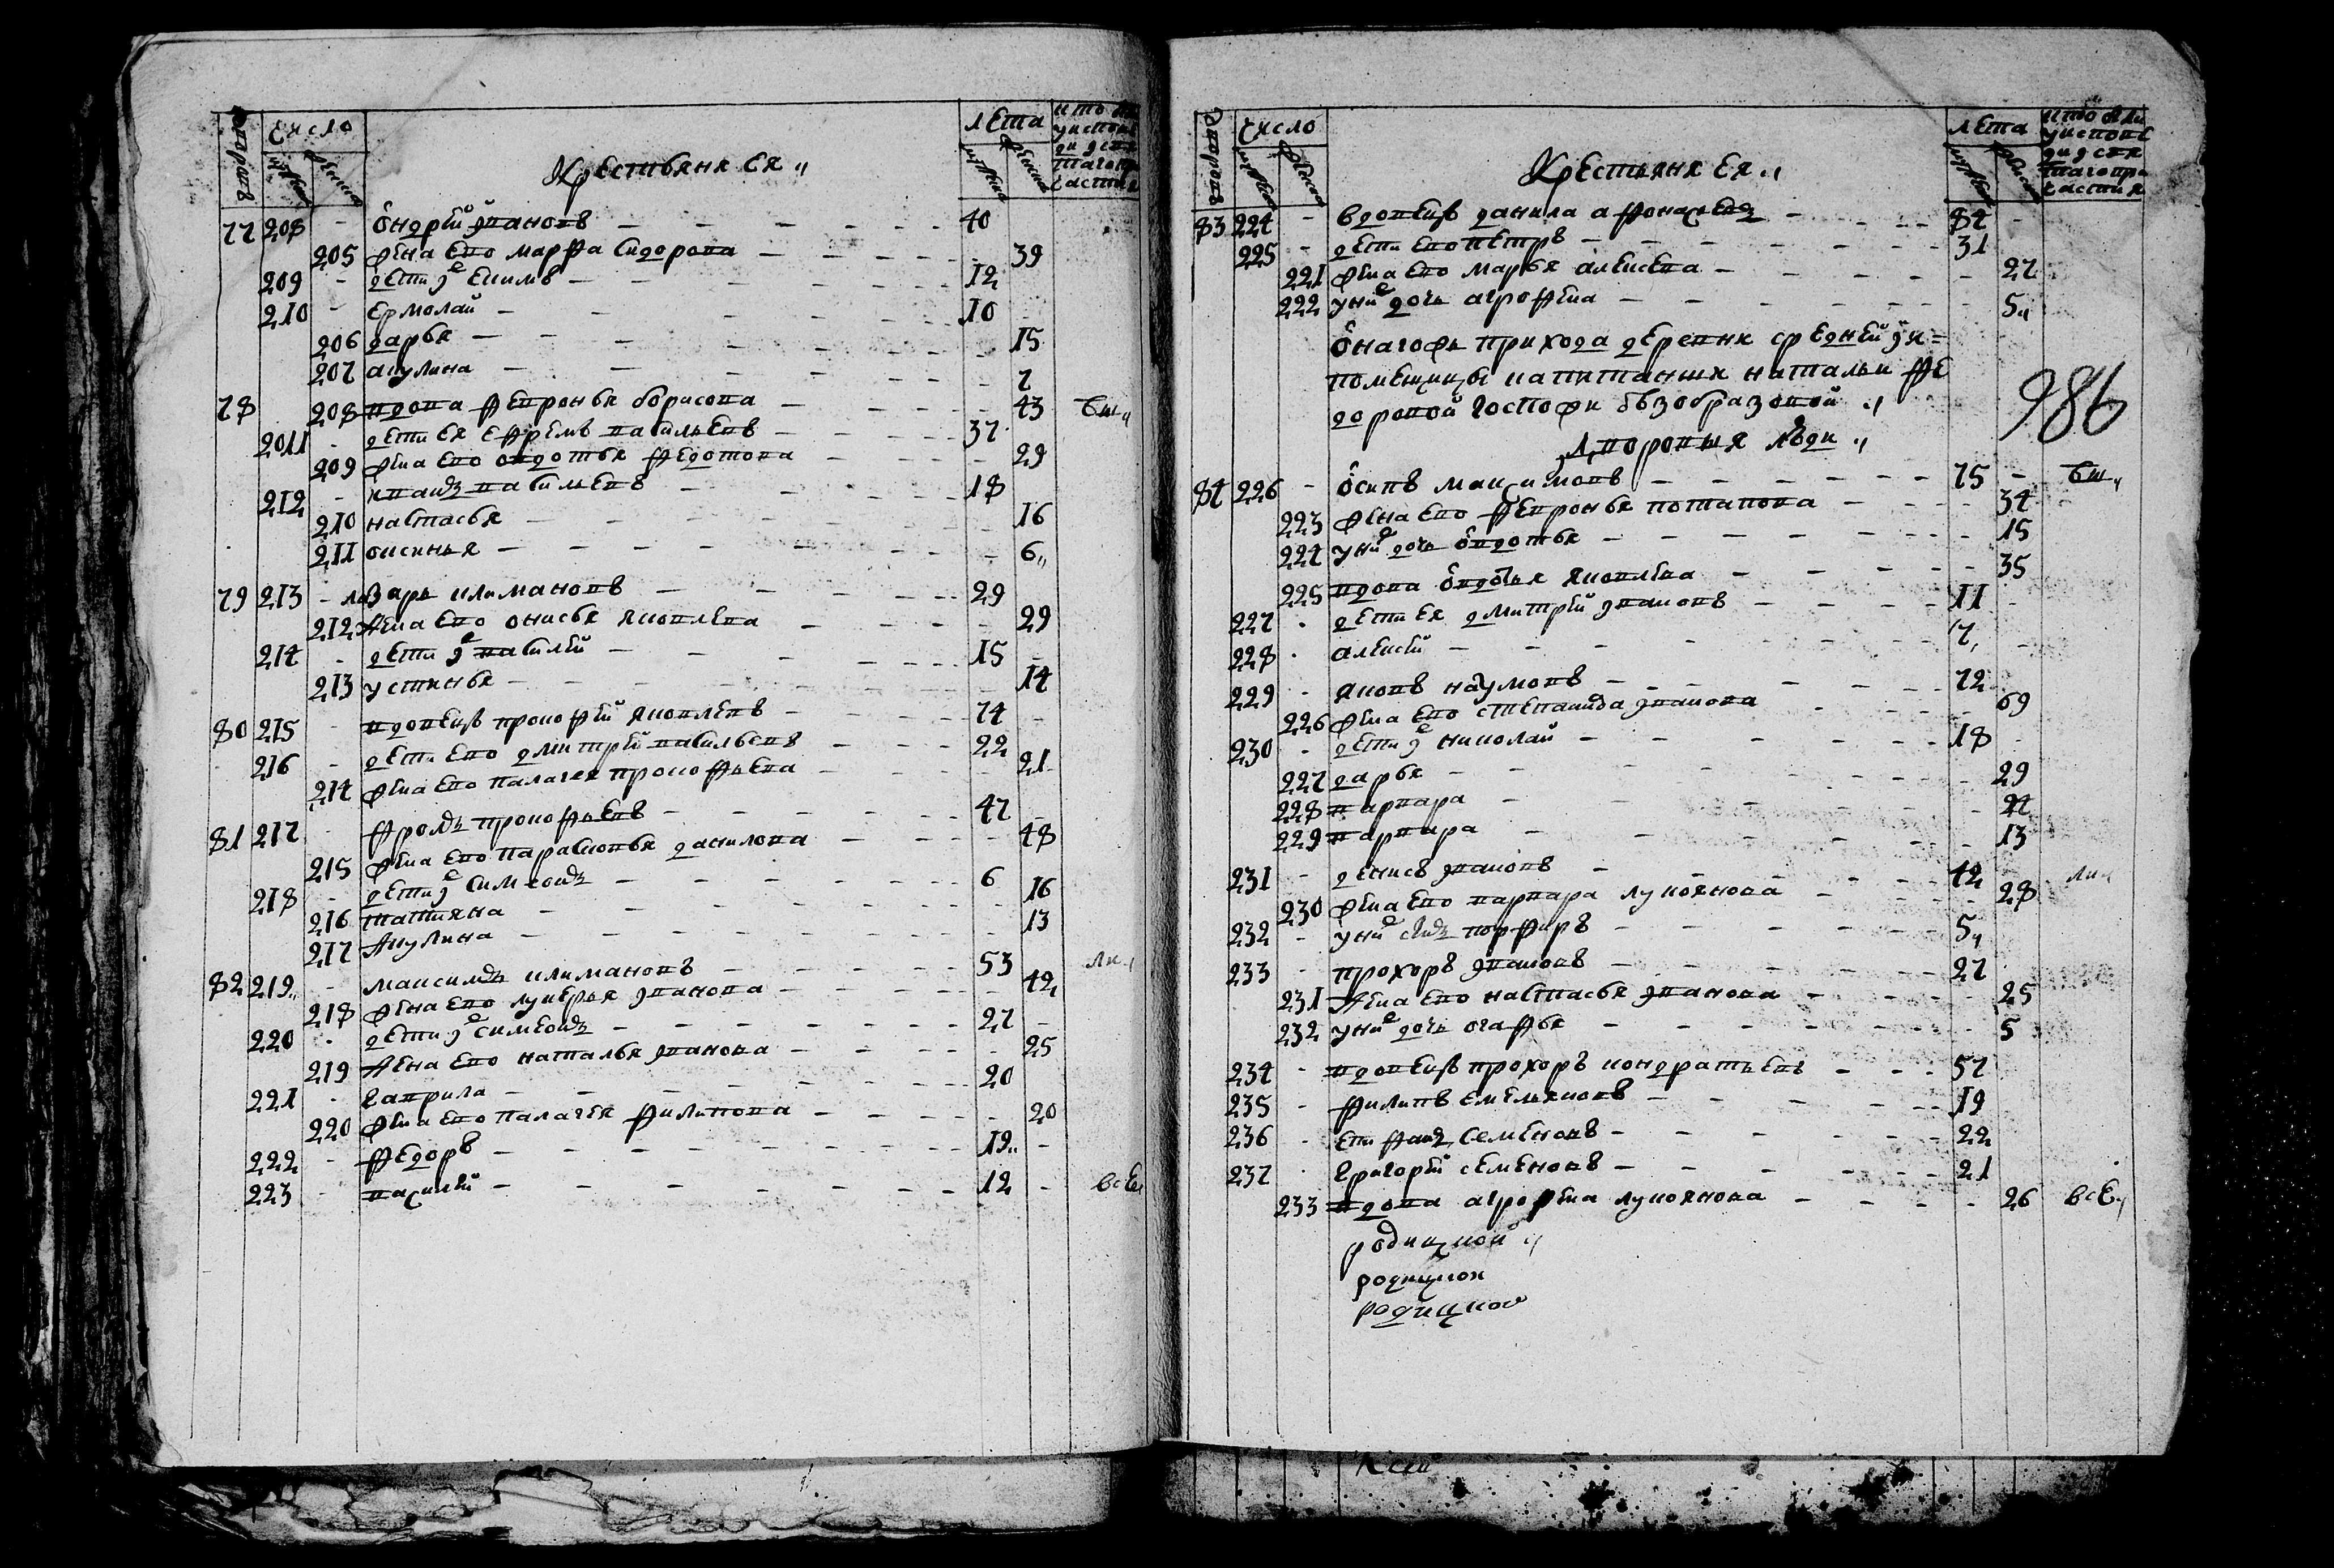 дворовъ
Число
мужеска
женска
Крестьяня ея
лета
мужеска
женска
кто был
у исповеди
и святаго
причастия
77 208 - Ондрей Иванов - 40
205 жена ево Марфа Сидорова - 39
209 - дети их Еким - 12
210 - Ермолай - 10
206 дарья - 15
207 акулина - 7
78 208 вдова Февронья борисова - 43 бы
2011 - дети ея Ефрем Васильев - 37
209 жена ево овдотья Федотова - 29
212 - Иван Васильев - 18
210 настасья - 16
211 оксинья - 6
79 213 - лазарь климанов - 29
212 жена ево онисья Яковлева - 29
214 - дети их Василей - 15
213 устинья - 14
80 215 - вдовец прокофей Яковлев - 74 -
216 - дети ево дмитрей Васильев - 22
214 жена ево палагея прокофьева - 21
81 217 - Фрол прокофьев - 47 -
215 жена ево парасковья данилова - 48
218 - дети их Симеон - 6
216 татияна - 16
217 Акулина - 13
82 219 - максим климанов - 53 ли
218 жена ево лукерья Иванова - 42
220 - дети их симеон - 27 -
219 жена ево наталья Иванова - 25
221 - гаврила - 20
220 жена ево палагея филипова - 20
222 - Федор - 19 -
223 - василей - 12 - все
дворовъ
Число
мужеска
женска
Крестьяня ея
лета
мужеска
женска
кто был
у исповеди
и святаго
причастия
83 224 - вдовец данила афонасьев - 84 -
225 - дети ево петр - 31
221 жена ево марья алексева - 27
222 у них дочь агрофена - 5
Онагожь прихода деревни средней
помещицы капитанши натальи Фе
доровой госпожи обзобразовой
986
дворовыя люди
84 226 - осип максимов - 75 - бы
223 жена ево Февронья потапова - 34
224 у них дочь овдотья - 15
225 вдова овдотья Яковлева - 35
227 - дети ея дмитрей Иванов - 11 -
228 - алексей - 7 -
229 - Яков наумов - 72
226 жена ево степанида Иванова - 69
230 - дети их николай - 18 -
227 дарья - 29
228 варвара - 22
229 варвара - 13
231 - денис Иванов - 42 ли
230 жена ево варвара лукоянова - 28
232 - у них сын порфир - 5
233 - прохор Иванов - 27
231 жена ево настасья Иванова - 25
232 у них дочь огафья - 5
234 - вдовец прохор кондратьев - 57
235 - филип емельянов - 19
236 - епифан Семенов - 22
237 - григорей семенов - 21
233 вдова агрофена лукоянова - 26 все
родицкой
родицкои
родицкой